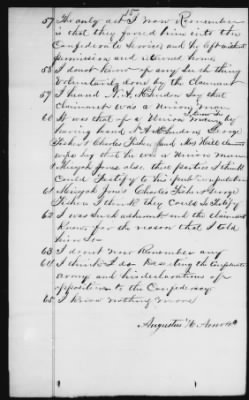 15
57 The only act I now Remember
is that they forced him into the
Confederate Service and he left without
permission and returned home
58 I do not know of any such thing
Voluntarily done by the claimant
59 I heard N. A. McLendon Say that
claimant was a Union man
60 It was that of a Union man by
having heard N A McLendon George
Fisher & Charles Fisher and Mrs Hill
who say that he was a Union man
Micajah Jones also other parties I think
could Testify to his
61 Micajah Jones Charles Fisher George
Fisher I think they could So Testify
62 I was Such adherent and the claimant
knows for the reason that I told
him So
63 I do not now Remember any
64 I think I do Deserting the Confederate
army and his declarations of
opposition to the Confederacy
65 I know nothing more
Augustus H